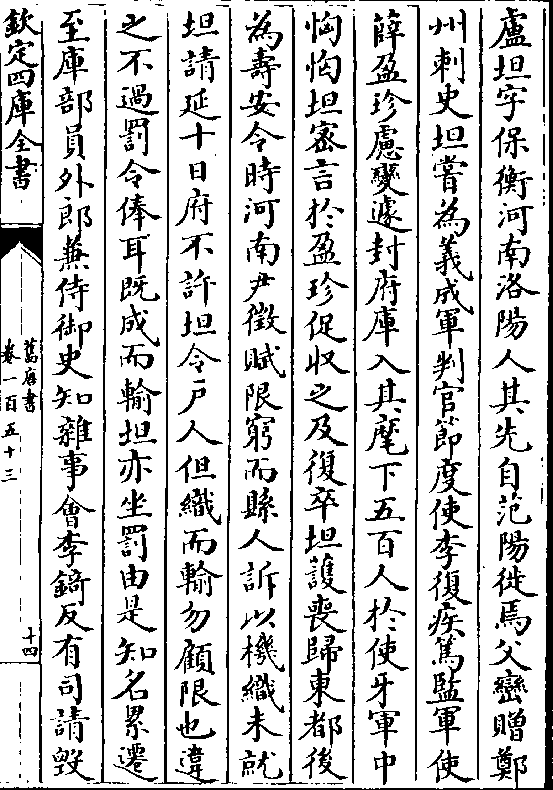 盧坦字保衡河南洛陽人其先自范陽徙焉父巒贈鄭
州刺史坦嘗為義成軍判官節度使李復疾篤監軍使
薛盈珍慮變遽封府庫入其麾下五百人於使牙軍中
恟恟坦宻言於盈珍促収之及復卒坦護喪歸東都後
為壽安令時河南尹徵賦限窮而縣人訴以機織未就
坦請延十日府不許坦令戸人但織而輸勿顧限也違
之不過罰令俸耳既成而輸坦亦坐罰由是知名累遷
至庫部員外郎兼侍御史知雜事會李錡反有司請毀
欽定四庫全書
舊唐書
卷一百五十三
十四